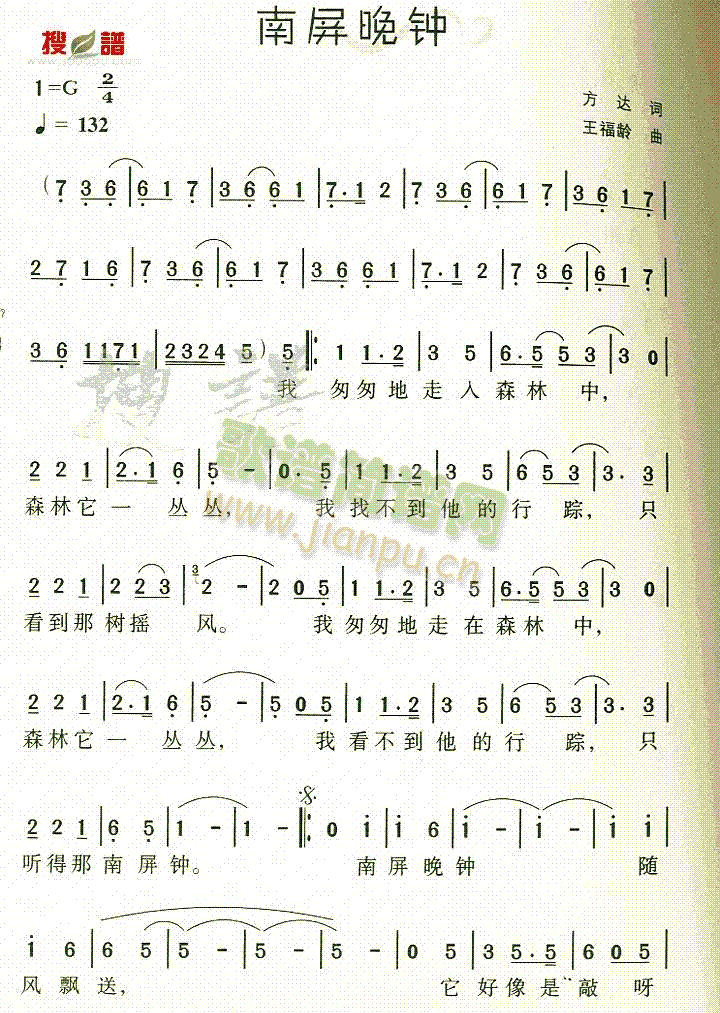 南屏晚钟
搜 譜
1=G 2/4
♩= 132
方 达 词
王福龄 曲
( 7 3 6 | 6 1 7 | 3 6 6 1 | 7 · 1 2 | 7 3 6 | 6 1 7 | 3 6 1 7 |
2 7 1 6 | 7 3 6 | 6 1 7 | 3 6 6 1 | 7 · 1 2 | 7 3 6 | 6 1 7 |
3 6 1171 | 2324 5 ) 5 ‖: 1 1·2 | 3 5 | 6·5 5 3 | 3 0 |
我 匆匆地走入森林 中,
2 2 1 | 2·1 6 | 5 - | 0· 5 | 1 1·2 | 3 5 | 6 5 3 | 3· 3 |
森林它一 丛丛, 我找不到他的行 踪, 只
2 2 1 | 2 2 3 | 3 2 - | 2 0 5 | 1 1·2 | 3 5 | 6·5 5 3 | 3 0 |
看到那树摇 风。 我匆匆地走在森林 中,
2 2 1 | 2·1 6 | 5 - | 5 0 5 | 1 1·2 | 3 5 | 6 5 3 | 3· 3 |
森林它一 丛丛, 我看不到他的行 踪, 只
2 2 1 | 6 5 | 1 - | 1 - :‖ 0 1 | 1 6 | 1 - | 1 - | 1 1 |
听得那南屏钟。 南屏晚钟 随
1 6 | 6 5 | 5 - | 5 - | 5 - | 0 5 | 3 5·5 | 6 0 5 |
风飘送, 它 好像是 敲 呀
歌谱简谱网
www.jianpu.cn